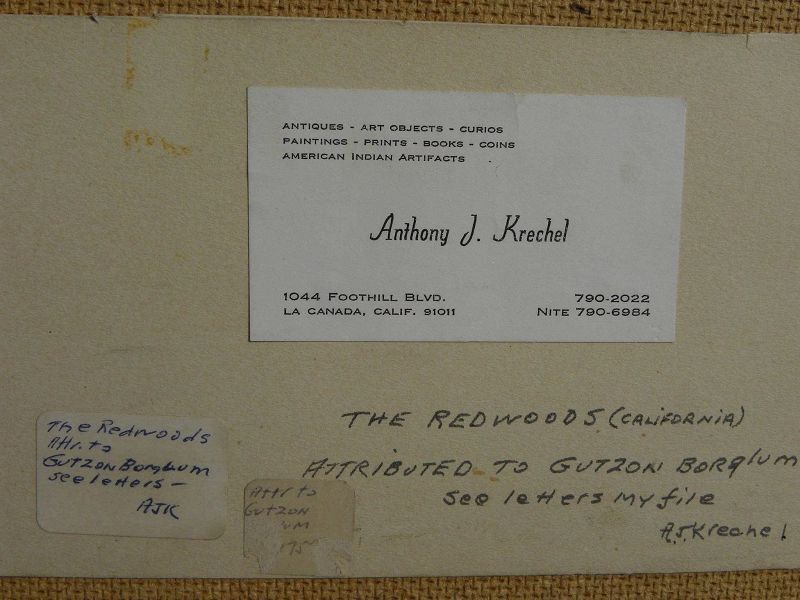 ANTIQUES - ART OBJECTS - CURIOS
PAINTINGS - PRINTS - BOOKS - COINS
AMERICAN INDIAN ARTIFACTS
Anthony J. Krechel
1044 FOOTHILL BLVD.
LA CANADA, CALIF. 91011
790-2022
NITE 790-6984
THE REDWOODS (CALIFORNIA)
ATTRIBUTED TO GUTZON BORGLUM
See letters my file
A.J. Krechel
The Redwoods
Attr. to
GUTZON Borglum
see letters -
AJK
Attr to
GUTZON
UM